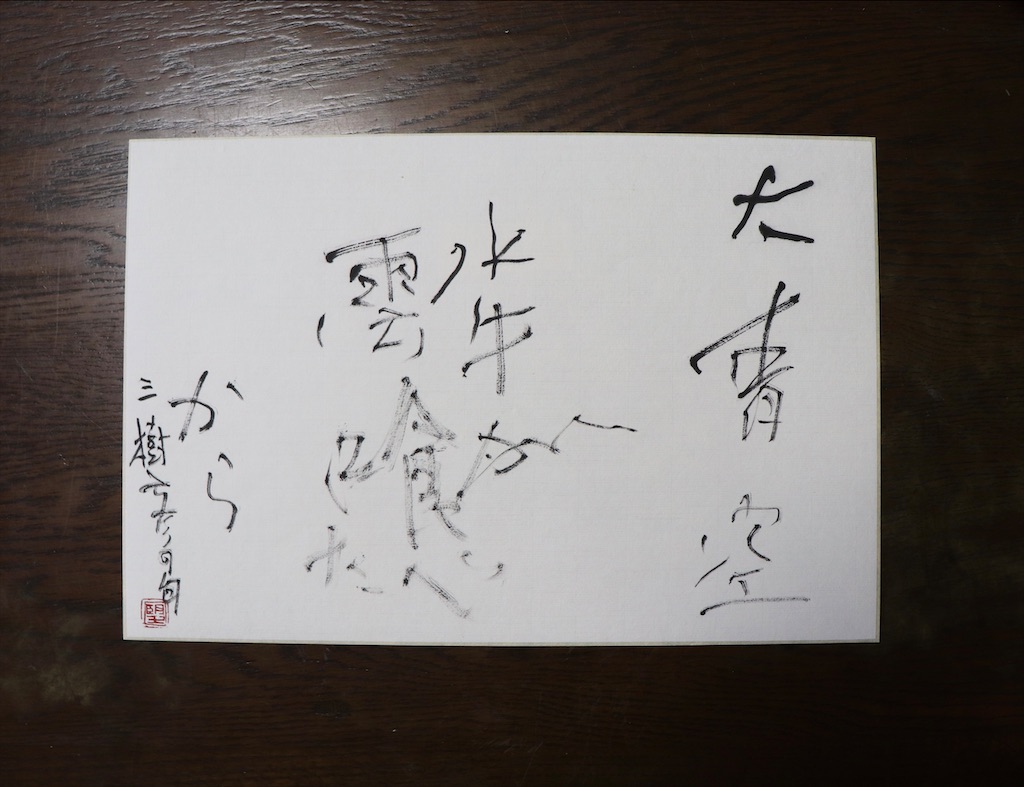 大青空
水牛が
雲喰べた
から
三樹彦の句